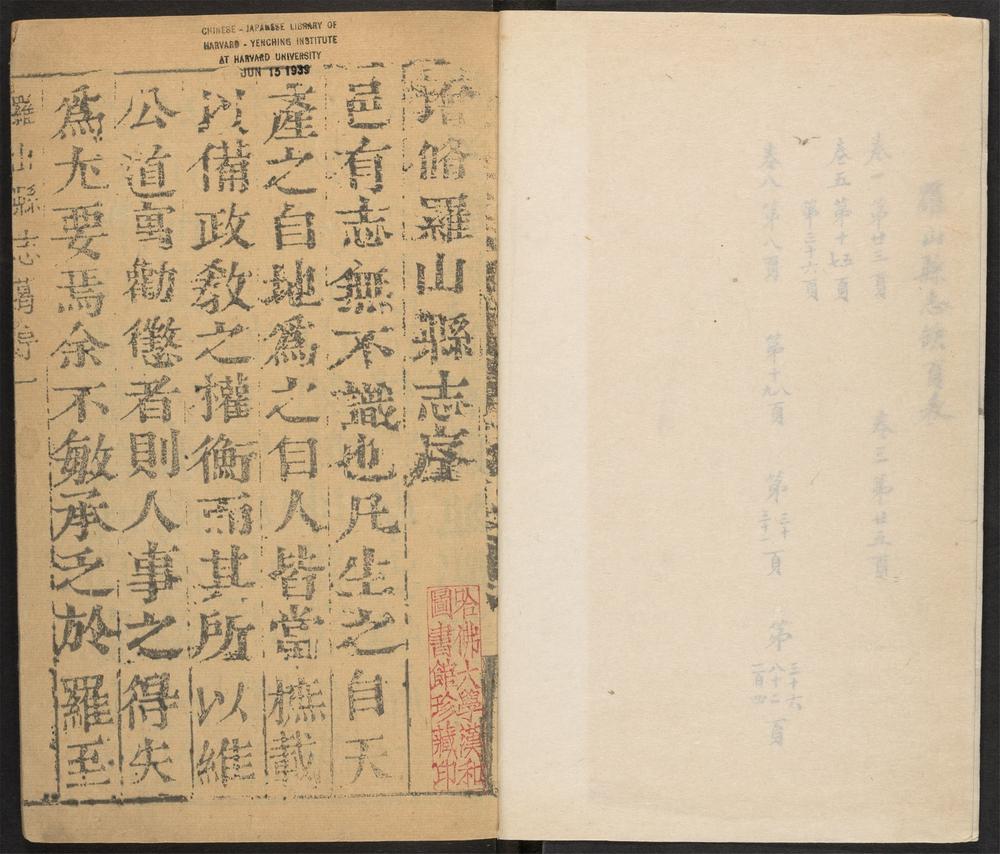 羅山縣志缺頁表
卷一 第廿三頁 卷三第廿五頁
卷五 第十五頁
第三十六頁
卷八 第八頁 第十九頁 第三十二頁 第
CHINESE - JAPANESE LIBRARY OF
HARVARD - YENCHING INSTITUTE
AT HARVARD UNIVERSITY
JUN 15 1939
脩羅山縣志序
邑有志無不識也凡生之自天
產之自地爲之自人皆當摭載
以備政敎之權衡而其所以維
公道寓勸懲者則人事之得失
爲尤要焉余不敏承乏於羅至
羅山縣志舊序 一
哈佛大學漢和
圖書館珍藏印